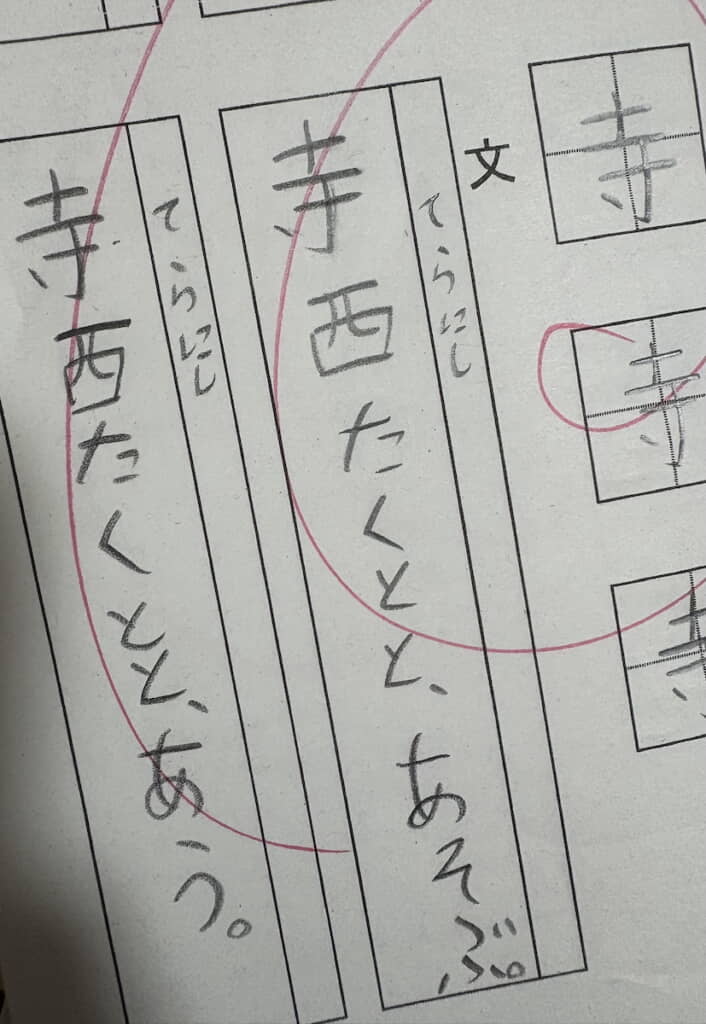 寺
寺
寺
文
てらにし
寺西たくとと、あそぶ
てらにし
寺西たくとと、あう。